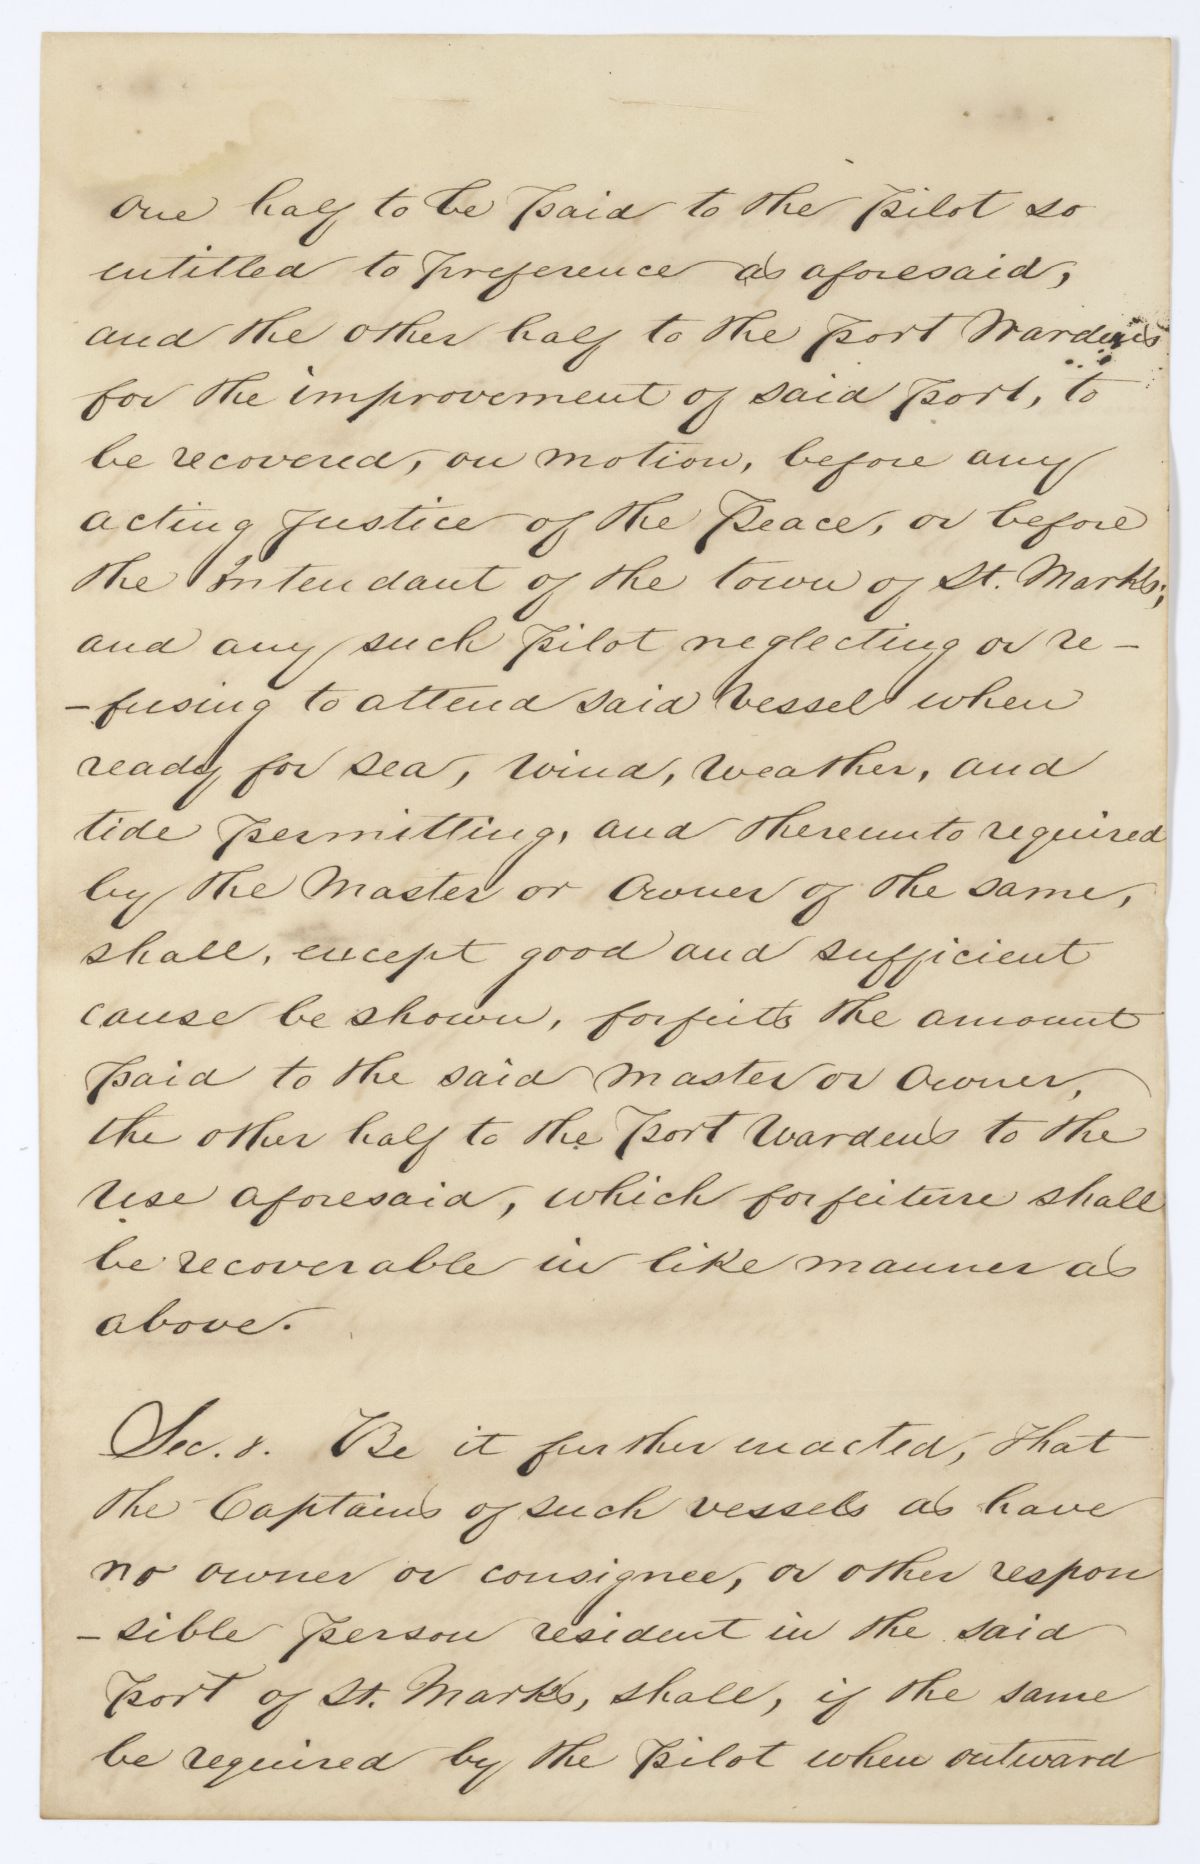 one half to be paid to the pilot so
entitled to preference as aforesaid,
and the other half to the port Wardens
for the improvement of said port, to
be recovered, on motion, before any
acting Justice of the Peace, or before
the Intendant of the town of St. Marks;
and any such pilot neglecting or re-
-fusing to attend said vessel when
ready for sea, wind, weather, and
tide permitting, and thereunto required
by the Master or Owner of the same,
shall, except good and sufficient
cause be shown, forfeits the amount
paid to the said Master or Owner,
the other half to the Port Wardens to the
use aforesaid, which forfeiture shall
be recoverable in like manner as
above.
Sec. 8. Be it further enacted, That
the Captains of such vessels as have
no owner or consignee, or other respon
-sible person resident in the said
Port of St. Marks, shall, if the same
be required by the pilot when outward